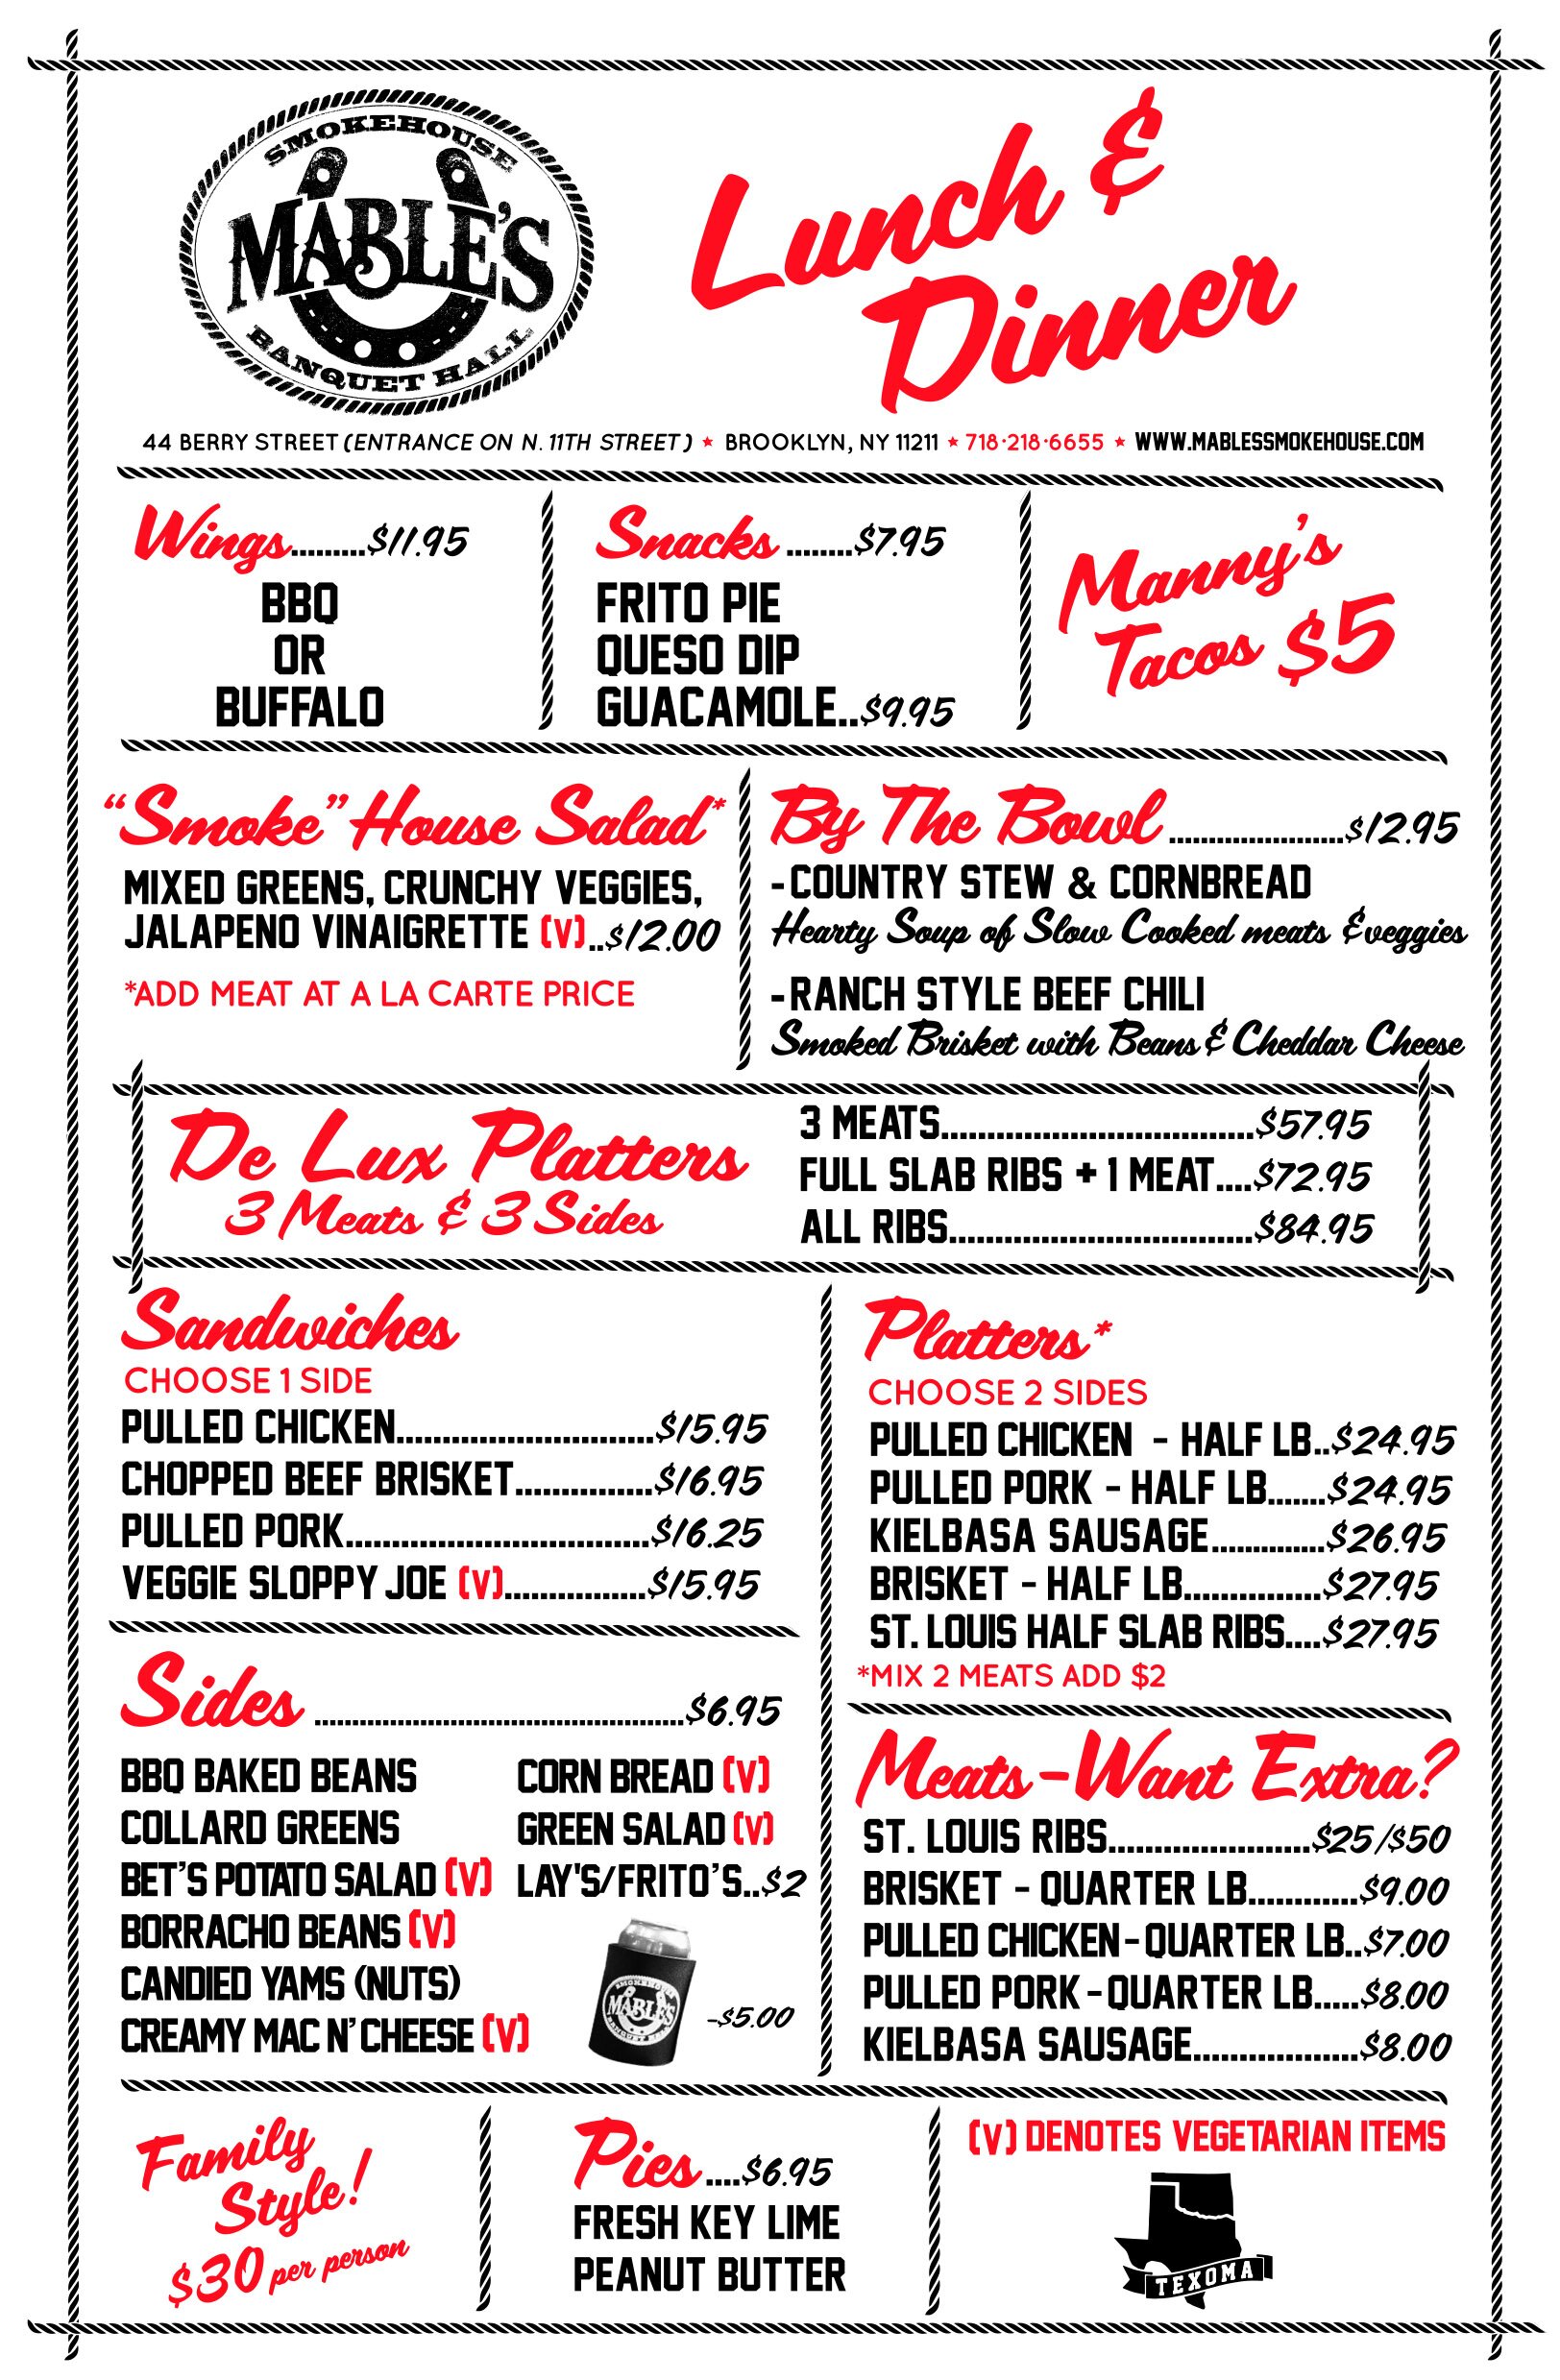 SMOKEHOUSE
MABLE'S
BANQUET HALL
Lunch &
Dinner
44 BERRY STREET (ENTRANCE ON N. 11TH STREET) ★ BROOKLYN, NY 11211 ★ 718·218·6655 ★ WWW.MABLESSMOKEHOUSE.COM
Wings.........$11.95
BBQ
OR
BUFFALO
Snacks ........$7.95
FRITO PIE
QUESO DIP
GUACAMOLE..$9.95
Manny's
Tacos $5
"Smoke" House Salad*
MIXED GREENS, CRUNCHY VEGGIES,
JALAPENO VINAIGRETTE (V)..$12.00
*ADD MEAT AT A LA CARTE PRICE
By The Bowl......................$12.95
-COUNTRY STEW & CORNBREAD
Hearty Soup of Slow Cooked meats & veggies
-RANCH STYLE BEEF CHILI
Smoked Brisket with Beans & Cheddar Cheese
De Lux Platters
3 Meats & 3 Sides
3 MEATS..................................$57.95
FULL SLAB RIBS + 1 MEAT....$72.95
ALL RIBS.................................$84.95
Sandwiches
CHOOSE 1 SIDE
PULLED CHICKEN............................$15.95
CHOPPED BEEF BRISKET...............$16.95
PULLED PORK.................................$16.25
VEGGIE SLOPPY JOE (V)................$15.95
Platters*
CHOOSE 2 SIDES
PULLED CHICKEN - HALF LB..$24.95
PULLED PORK - HALF LB.......$24.95
KIELBASA SAUSAGE..............$26.95
BRISKET - HALF LB...............$27.95
ST. LOUIS HALF SLAB RIBS....$27.95
*MIX 2 MEATS ADD $2
Sides ...............................................$6.95
BBQ BAKED BEANS
COLLARD GREENS
BET'S POTATO SALAD (V)
BORRACHO BEANS (V)
CANDIED YAMS (NUTS)
CREAMY MAC N' CHEESE (V)
CORN BREAD (V)
GREEN SALAD (V)
LAY'S/FRITO'S..$2
SMOKEHOUSE
MABLE'S
BANQUET HALL
-$5.00
Meats-Want Extra?
ST. LOUIS RIBS......................$25/$50
BRISKET - QUARTER LB............$9.00
PULLED CHICKEN-QUARTER LB..$7.00
PULLED PORK-QUARTER LB.....$8.00
KIELBASA SAUSAGE..................$8.00
Family
Style!
$30 per person
Pies....$6.95
FRESH KEY LIME
PEANUT BUTTER
(V) DENOTES VEGETARIAN ITEMS
TEXOMA